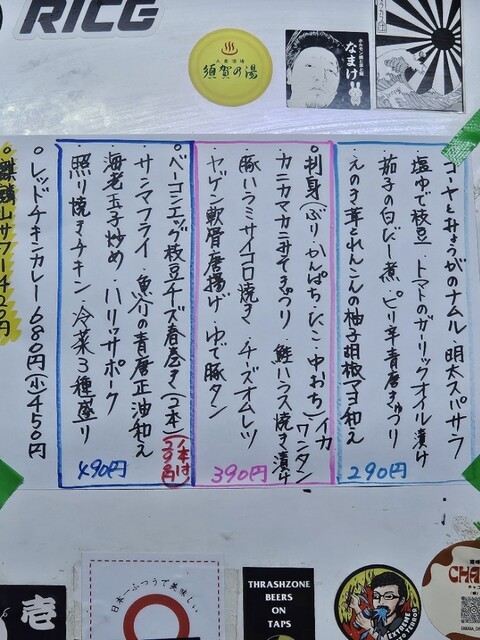 RICG
須賀の湯
なまけ
ゴーヤとみょうがのナムル・明太スパサラ
塩ゆで枝豆・トマトのガーリックオイル漬け
茄子の白だし煮・ピリ辛青唐きゅうり
・えのき茸とれんこんの柚子胡椒マヨ和え
290円
刺身(ぶり・かんぱち・たこ・中おち)イカワンタン
カニカマカニみそきゅうり・鮭ハラス焼き漬け
・豚ハラミサイコロ焼き・チーズオムレツ
・ヤゲン軟骨唐揚げ・ゆで豚タン
390円
ベーコンエッグ枝豆チーズ春巻き(2本)
・サンマフライ・魚介の青唐正油和え
・海老玉子炒め・ハリッサポーク
・照り焼きチキン・冷菜3種盛り
490円
レッドチキンカレー680円(小)450円
麒麟山サワー420円
壱
日本一ふつうで美味しい
THRASHZONE
BEERS
ON
TAPS
EXTREME
TERROR